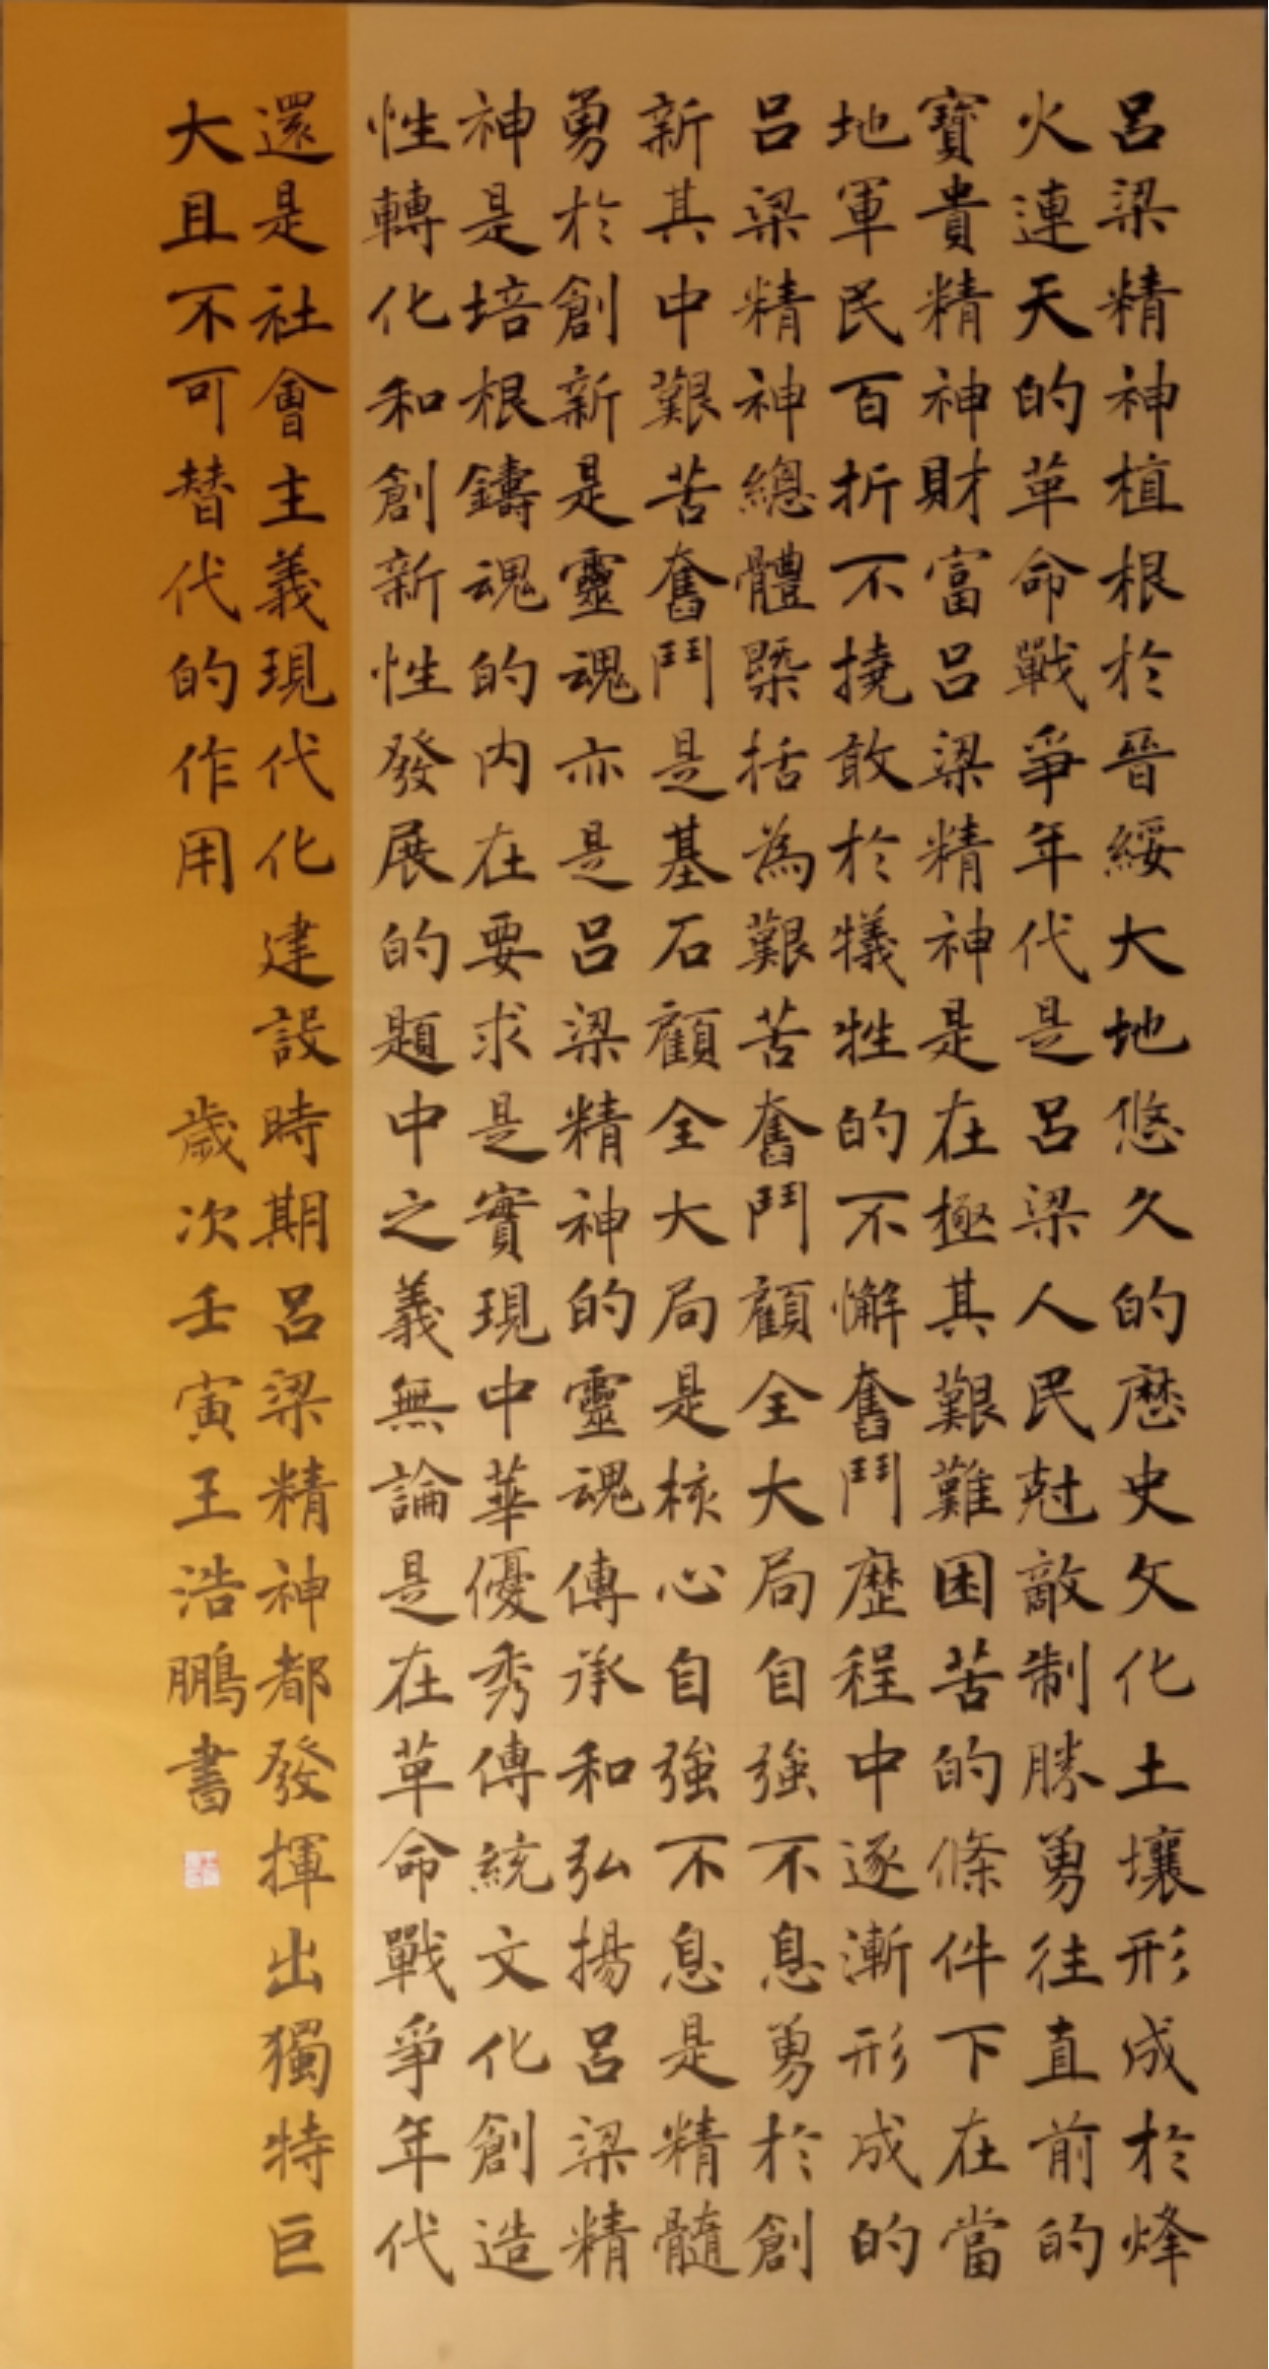 呂梁精神植根於晉綏大地悠久的歷史文化土壤形成於烽
火連天的革命戰爭年代是呂梁人民尅敵制勝勇往直前的
寶貴精神財富呂梁精神是在極其艱難困苦的條件下在當
地軍民百折不撓敢於犧牲的不懈奮鬥歷程中逐漸形成的
呂梁精神總體槩括為艱苦奮鬥顧全大局自強不息勇於創
新其中艱苦奮鬥是基石顧全大局是核心自強不息是精髓
勇於創新是靈魂亦是呂梁精神的靈魂傳承和弘揚呂梁精
神是培根鑄魂的内在要求是實現中華優秀傳統文化創造
性轉化和創新性發展的題中之義無論是在革命戰爭年代
還是社會主義現代化建設時期呂梁精神都發揮出獨特巨
大且不可替代的作用 歲次壬寅王浩鵬書